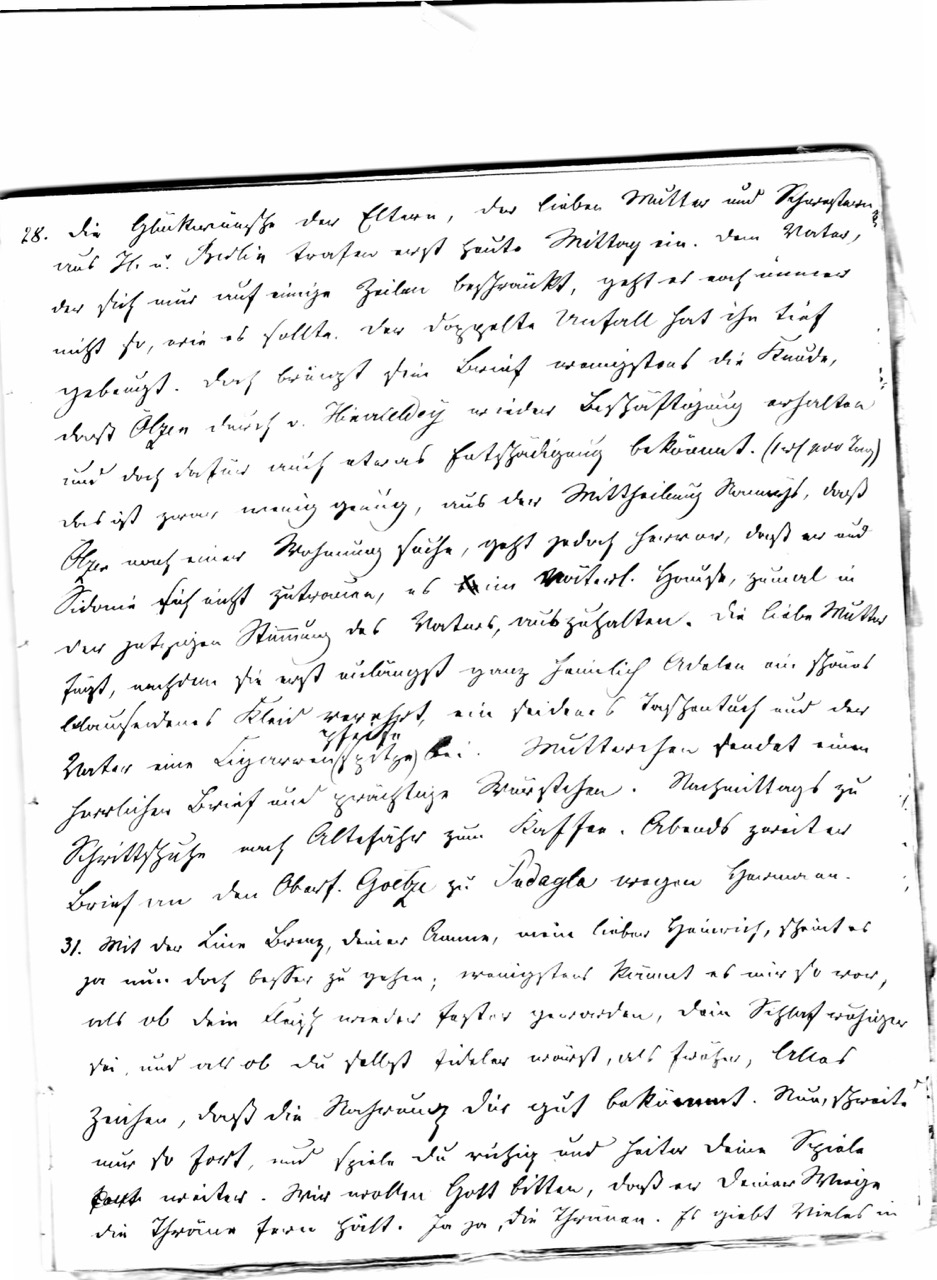 28. Die Glückwünsche der Eltern, der lieben Mutter und Schwestern
aus H. u. Berlin trafen erst heute Mittag ein. Dem Vater,
der sich nur auf einige Zeilen beschränkt, geht es noch immer
nicht so, wie es sollte. Der doppelte Unfall hat ihn tief
gebeugt. Doch bringt sein Brief wenigstens die Freude,
daß durch v. wieder Beschäftigung erhalten
und doch dafür auch etwas Entschädigung bekömmt. (1 pro Tag)
das ist zwar wenig genug, aus der Mittheilung, daß
nach einer Wohnung suche, geht jedoch hervor, daß er und
Sidonie sich nicht zutrauen, es im väterl. Hause, zumal in
der jetzigen Stimmung des Vaters, auszuhalten. Die liebe Mutter
fügt, nachdem sie erst unlängst ganz heimlich Adelen ein schönes
blauseidenes Kleid verehrt, ein seidenes Taschentuch und der
pfeife
Vater eine Cigarren(spitze) bei. Mutterchen sendet einen
herrlichen Brief und prächtige Würstchen. Nachmittags zu
Schrittschuhe nach Altefähr zum Kaffee. Abends zweiter
Brief an den Oberf. Goetze zu Pudagla wegen Hermann.
31. Mit der Line Brenz, deiner Amme, mein lieber Heinrich, scheint es
ja nun doch besser zu gehen; wenigstens kömmt es mir so vor,
als ob dein Fleisch wieder fester geworden, dein Schlaf ruhiger
sei, und als ob du selbst fideler wärst, als früher, Alles
Zeichen, daß die Nahrung dir gut bekömmt. Nun, schreite
nur so fort, und spiele du ruhig und heiter deine Spiele
weiter. Wir wollen Gott bitten, daß er deiner Wiege
die Thräne fern hält. Ja ja, die Thränen. Es giebt Vieles in